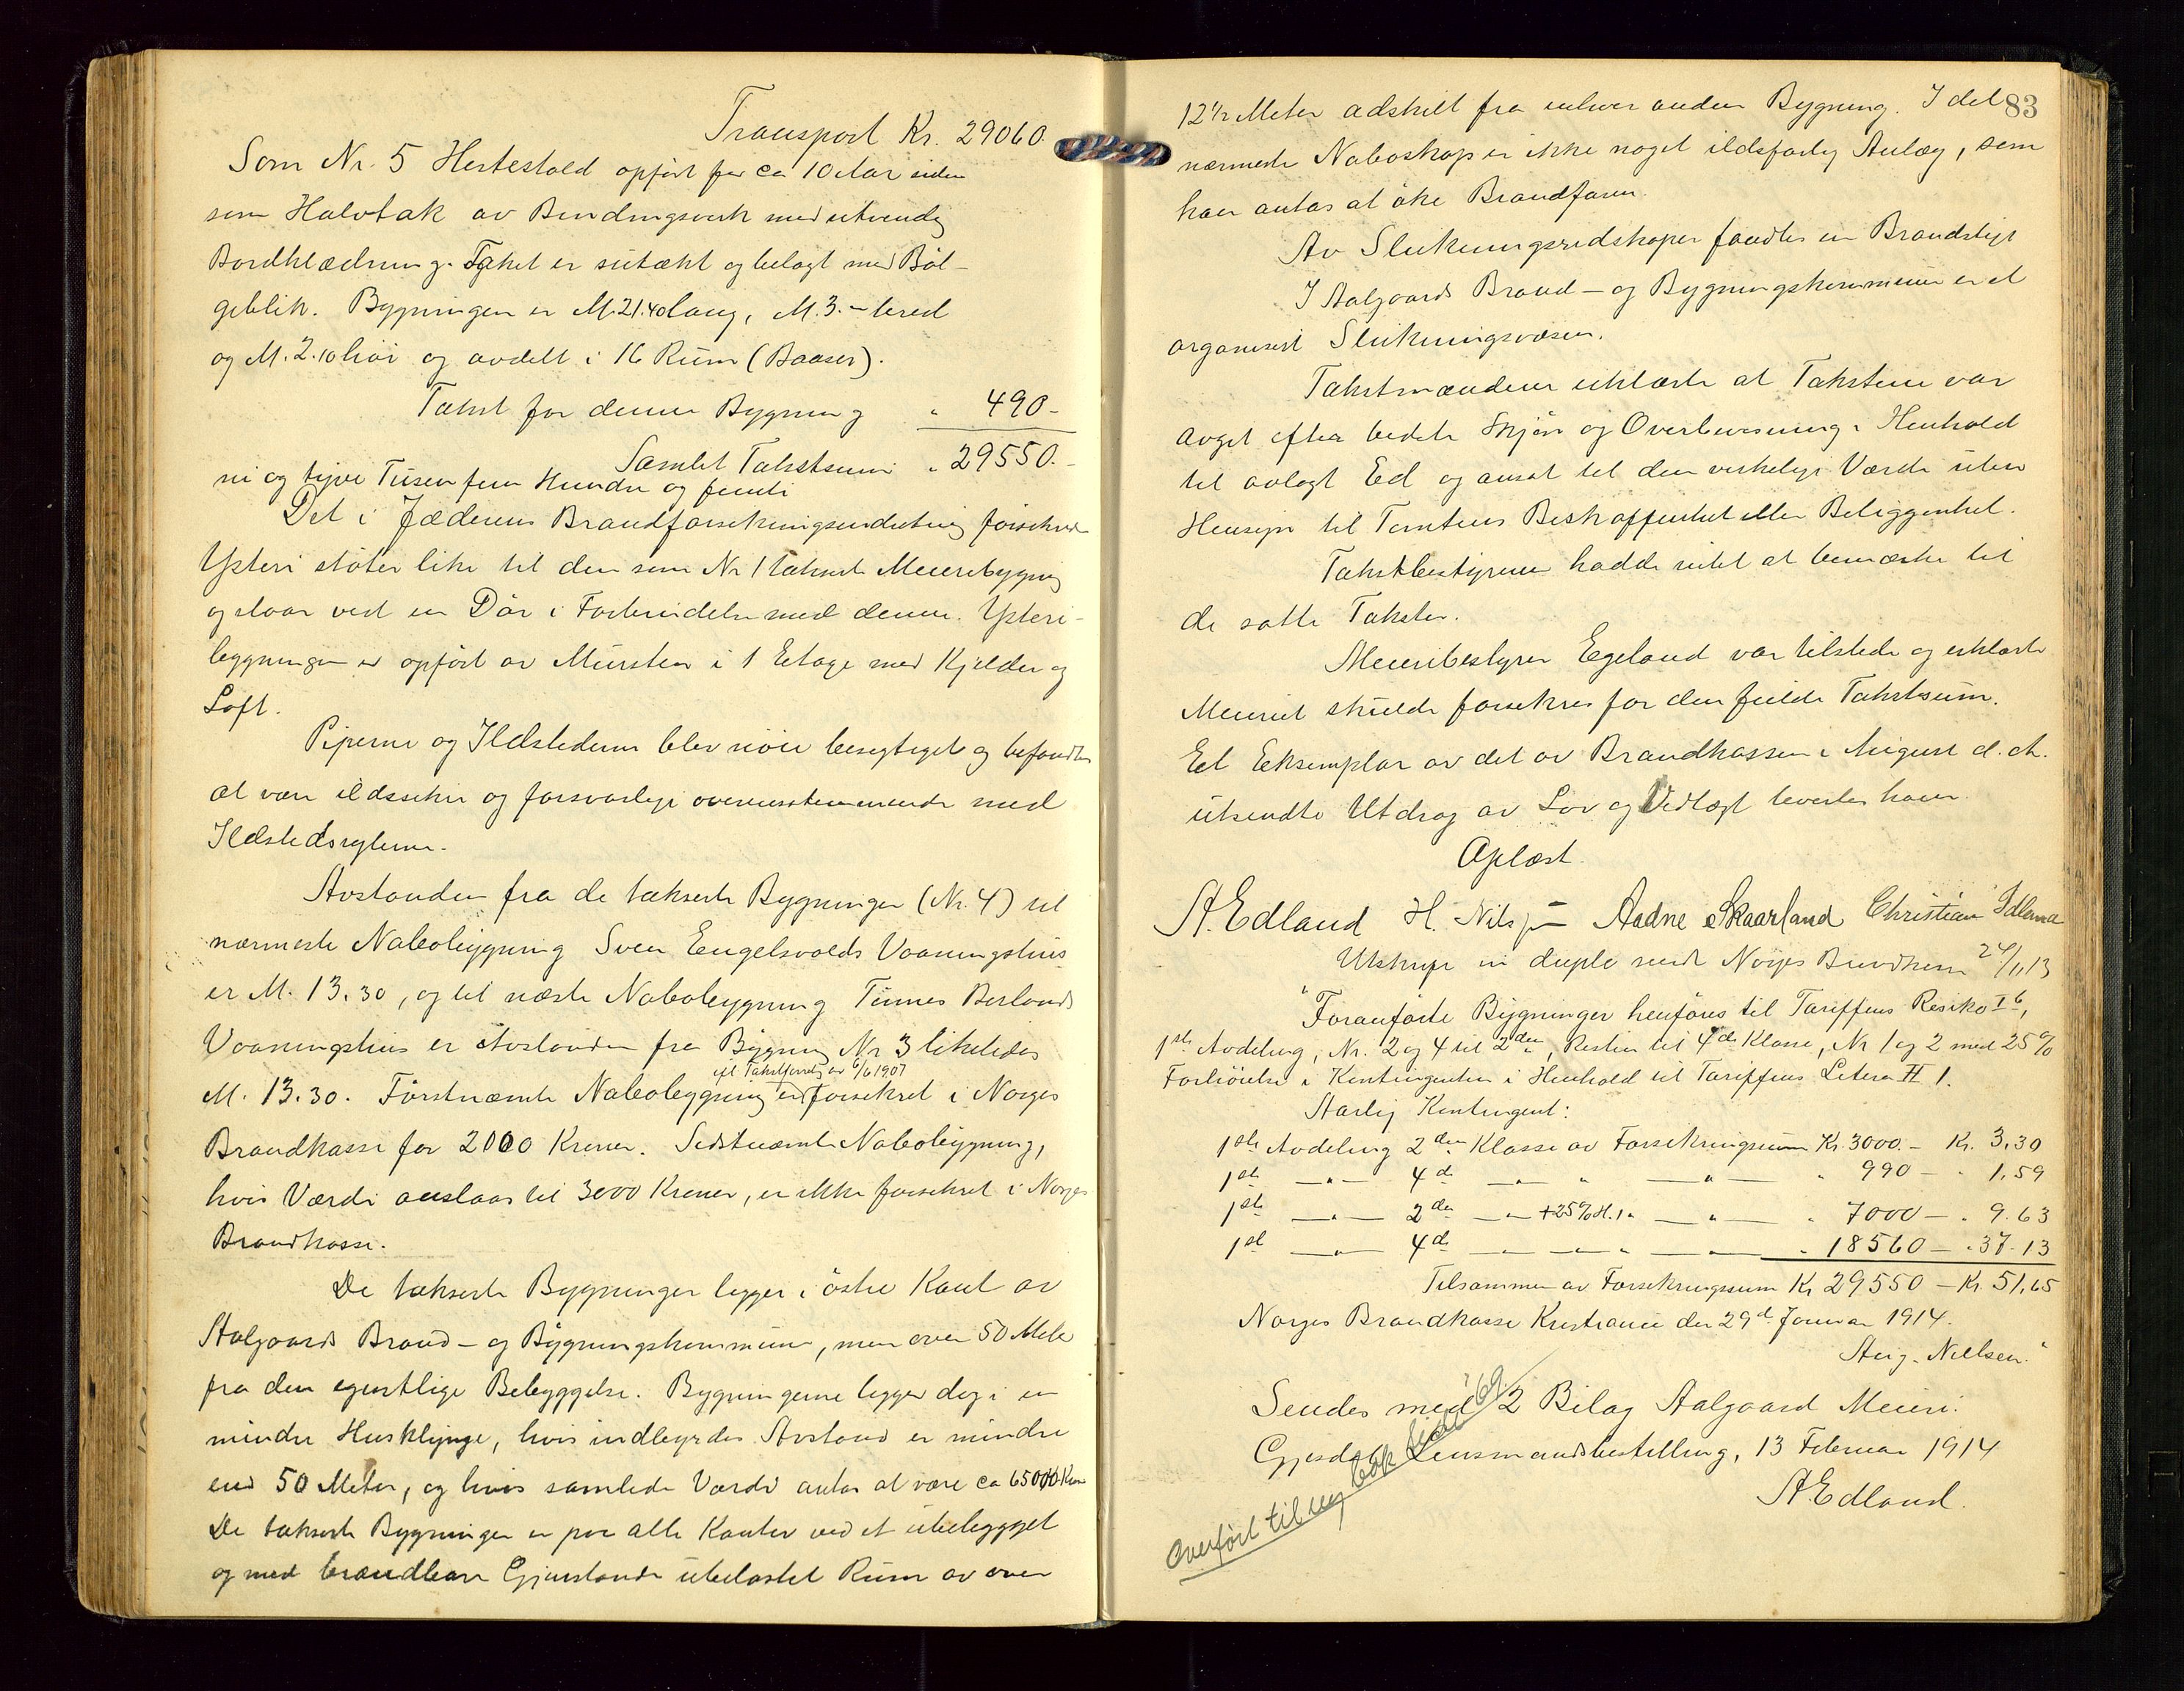 Transport Kr. 29060.
Som Nr. 5 Hestestald opført for ca 10 Aar siden
som Halvtak av Bindingsverk med utvendig
Bordklædning. Taket er sutækt og belagt med Bøl-
geblik. Bygningen er M. 21.40 lang, M. 3.- bred
og M. 2.10 høi og avdelt i 16 Rum (Baaser).
Takst for denne Bygning " 490-
Samlet Takstsum " 29550.-
ni og tyve Tusen fem Hundre og femti
Det i Jæderens Brandforsekringsindretning forsekrede
Ysteri støter like til den som Nr 1 takserte Meieribygning
og staar ved en Dør i Forbindelse med denne. Ysteri-
bygningen er opført av Mursten i 1 Etage med Kjelder og
Loft.
Piperne og Ildstederne blev nøie besigtiget og befandtes
at være ildssikre og forsvarlige overensstemmende med
Ildstedsreglerne.
Avstanden fra de takserte Bygninger (Nr. 4) til
nærmeste Nabobygning Sven Engelsvolds Vaaningshus
er M. 13.30, og til næste Nabobygning Tønnes Berlands
Vaaningshus er Avstanden fra Bygning Nr 3 likeledes
ifl Takstforretn. av 6/6 1907
M. 13.30. Førstnæmte Nabobygning er forsekret i Norges
Brandkasse for 2000 Kroner. Sidstnæmte Nabobygning,
hvis Værdi anslaas til 3000 Kroner, er ikke forsekret i Norges
Brandkasse.
De takserte Bygninger ligger i østre Kant av
Aalgaards Brand- og Bygningskommune, men over 50 Meter
fra den egentlige Bebyggelse. Bygningerne ligger dog i en
mindre Husklynge, hvis indbyrdes Avstand er mindre
end 50 Meter, og hvis samlede Værdi antas at være ca 65000 Kroner
De takserte Bygninger er paa alle Kanter ved et ubebygget
og med brændbare Gjenstande ubelastet Rum av over
83
12½ Meter adskilt fra enhver anden Bygning. I det
nærmeste Naboskap er ikke noget ildsfarlig Anlæg, som
kan antas at øke Brandfaren.
Av Slukningsredskaper fandtes en Brandstige
I Aalgaards Brand- og Bygningskommune er et
organisert Slukningsvæsen.
Takstmændene erklærte at Taksten var
avgit efter bedste Skjøn og Overbevisning i Henhold
til avlagt Ed og ansat til den virkelige Værdi uten
Hensyn til Tomtens Beskaffenhet eller Beliggenhet.
Takstbestyreren hadde intet at bemærke til
de satte Takster.
Meieribestyrer Egeland var tilstede og erklærte
Meieriet skulde forsekres for den fulde Takstsum.
Et Eksemplar av det av Brandkassen i August d. A.
utsendte Utdrag av Lov og Vedtægt levertes ham.
Oplæst.
A. Edland H. Nilsen Aadne Skaarland Christian Idland
Utskrift in duplo sendt Norges Brandkasse 24/11 13
"Foranførte Bygninger henføres til Tariffens Resiko I b,
1ste Avdeling, Nr. 2 og 4 til 2den, Resten til 4de Klasse, Nr 1 og 2 med 25%
Forhøielse i Kontingenten i Henhold til Tariffens Litera H 1.
Aarlig Kontingent:
1ste Avdeling 2den Klasse av Forsekringssum Kr. 3000.- Kr. 3,30
1ste -"- 4de -"- " -"- " 990 - " 1,59
1ste -"- 2den -"- +25% H.1. -"- " 7000 - " 9.63
1ste -"- 4de -"- -"- " -"- " 18560 - " 37.13
Tilsammen av Forsekringssum Kr 29550 - Kr. 51,65
Norges Brandkasse Kristiania den 29de Januar 1914.
Aug. Nielsen."
Sendes med 2 Bilag Aalgaard Meieri.
Gjesdal Lensmandsbestilling, 13 Februar 1914
A. Edland.
Overført til ny bok side 69